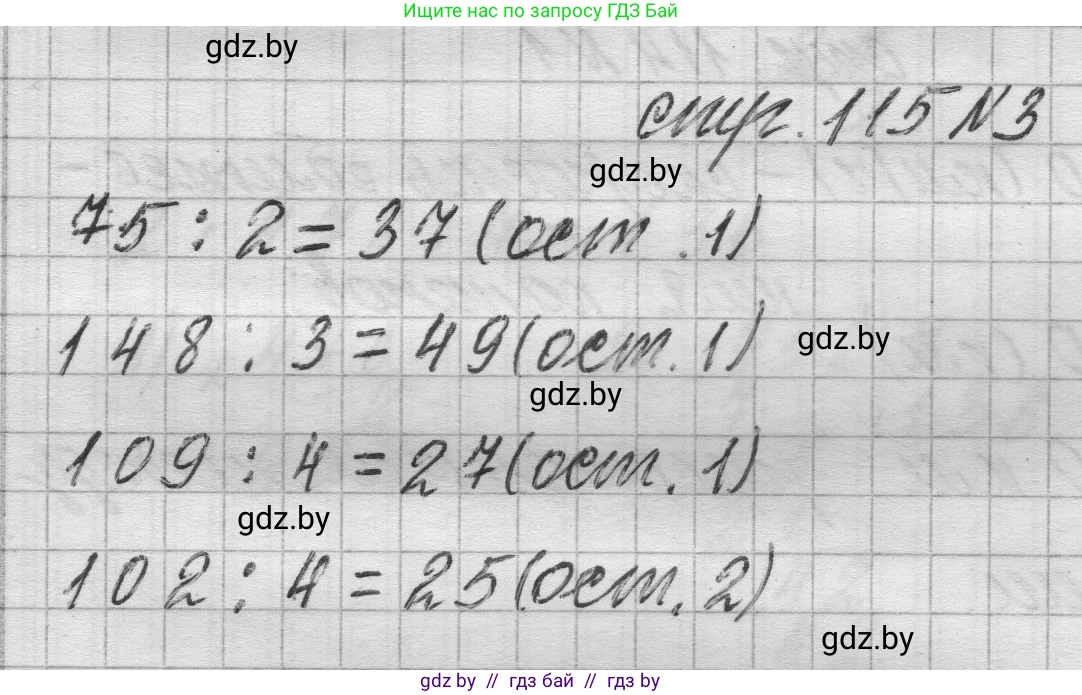 Ищите нас по запросу ГДЗ Бай
gdz.by
стр. 115 N3
gdz.by
75 : 2 = 37 (ост .1)
148 : 3 = 49 (ост. 1)
gdz.by
gdz.by
109 : 4 = 27 (ост. 1)
gdz.by
102 : 4 = 25 (ост. 2)
gdz.by
gdz by // гдз бай // гдз by